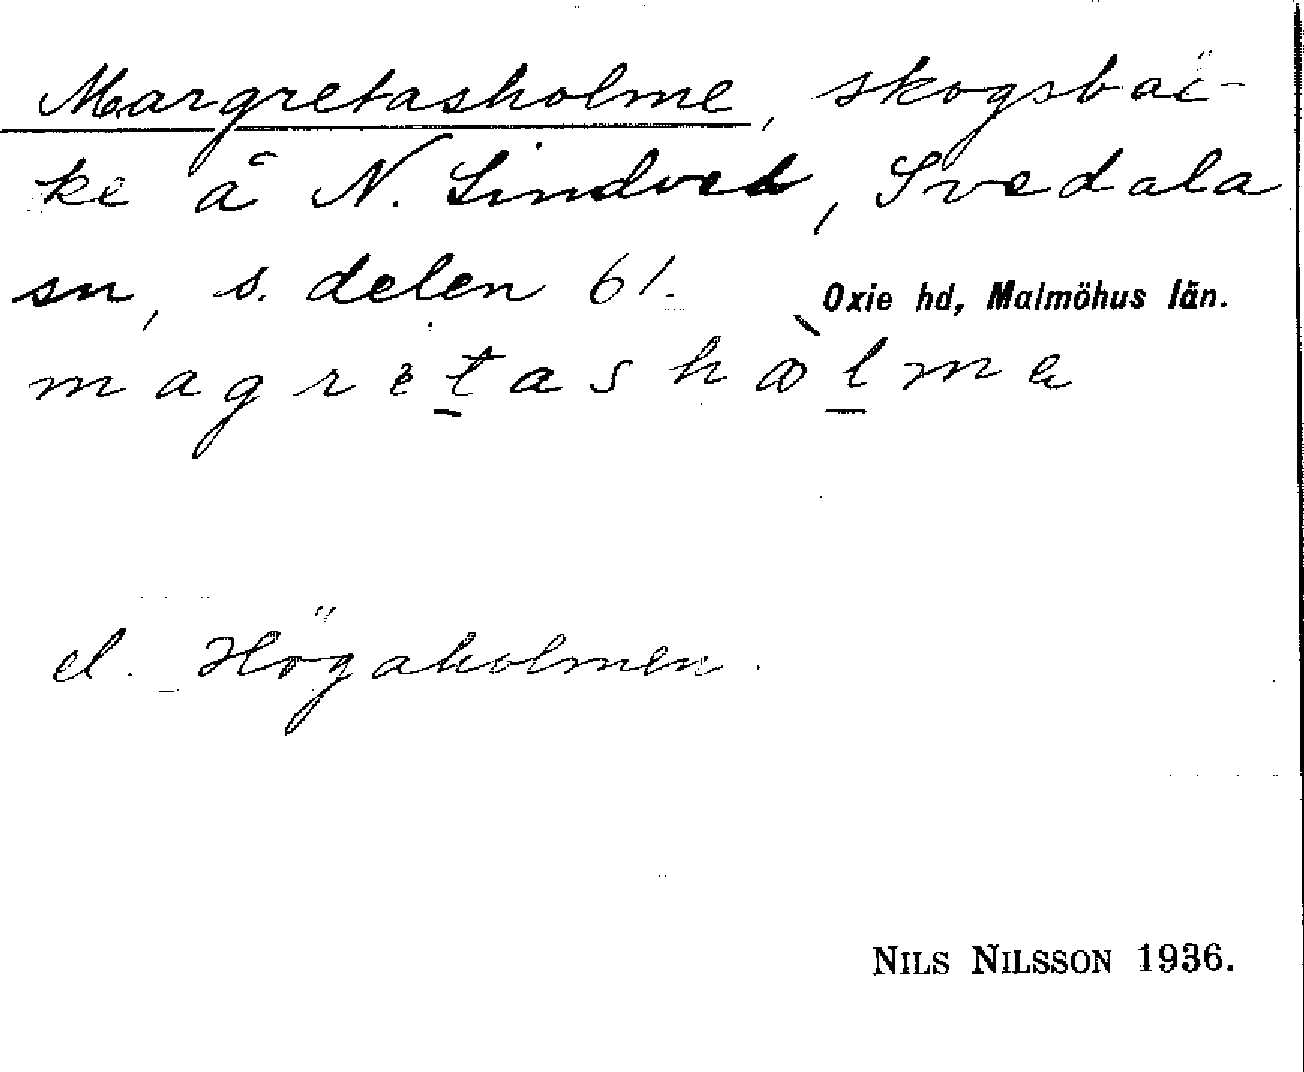 Margretasholme, skogsbac̈-
ke å N. Lindved, Svedala
sn, s. delen 61. Oxie hd, Malmöhus län.
el. Högaholmen.
NILS NILSSON 1936.